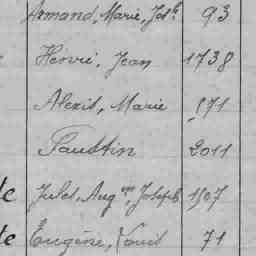 Armand, Marie, Jos.h 93
Hervé, Jean 1738
Alexis, Marie 871
Faustin 2011
te Jules, Aug.in, Joseph 1507
te Eugène, Louis 71